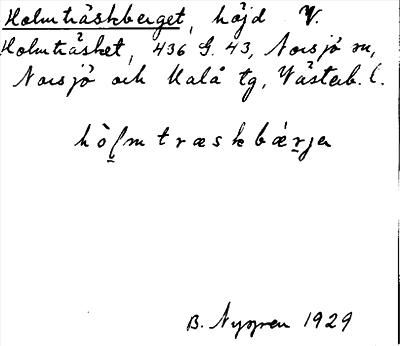 Holmträskberget, höjd V.
Holmträsket, 436 G. 43, Norsjö sn,
Norsjö och Malå tg, Västerb. l.
B. Nygren 1929